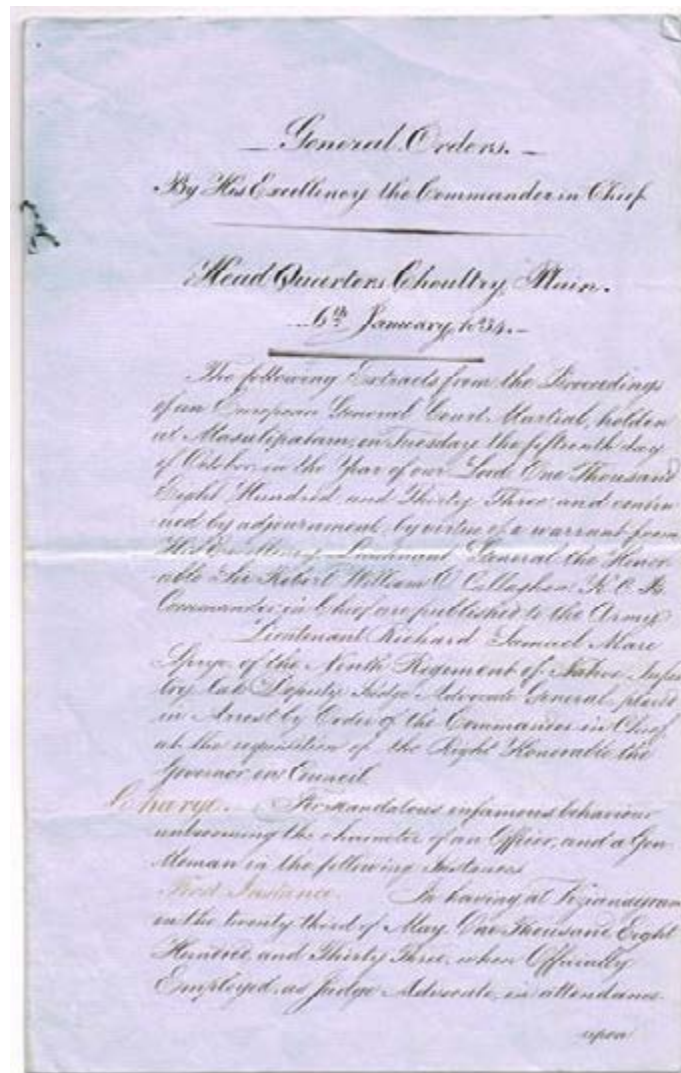 General Orders. —
By His Excellency the Commander in Chief
Head Quarters Choultry Plain.
6th January, 1834. —
The following Extracts from the Proceedings
of an European General Court Martial, holden
at Masulipatam, on Tuesday the fifteenth day
of October, in the Year of our Lord One Thousand
Eight Hundred and Thirty Three and contin
ued by adjournment, by virtue of a warrant from
His Excellency Lieutenant General the Honor
able Sir Robert William O'Callaghan K.C.B.
Commander in Chief are published to the Army.
Lieutenant Richard Samuel Mare
Sprye of the Ninth Regiment of Native Infan
try late Deputy Judge Advocate General, placed
in Arrest by Order of the Commander in Chief,
at the requisition of the Right Honorable the
Governor in Council
Charge. For scandalous infamous behaviour
unbecoming the character of an Officer, and a Gen
tleman in the following Instances
First Instance. In having at Vizianagram
on the twenty third of May One Thousand Eight
Hundred and Thirty Three, when Officially
Employed, as Judge Advocate, in attendance
upon